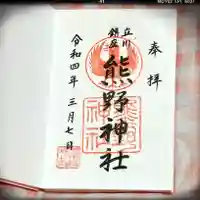 奉拝
立川
鎮座
熊野神社
令和四年三月七日